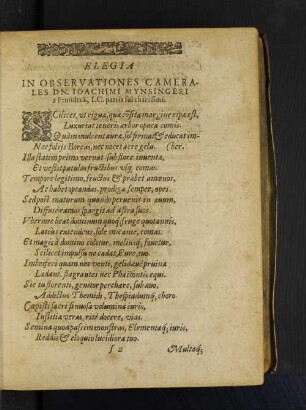 ELEGIA
IN OBSERVATIONES CAMERA-
LES DN. IOACHIMI MYNSINGERI
à Frundeck, I.C. patris sui charissimi.
SCilicet, ut rigua, quæ cõsita margine ripæ est,
Luxuriat teneris arbor opaca comis.
Quàm mulcent auræ, sol firmat, & educat im-
Nec fœlijs Boreas, nec nocet acre gelu. (ber.
Illa statim primo vernat sub flore iuuenta,
Et vestit patulas fructibus usq; comas.
Tempore legitimo, fructus & præbet amœnos,
Ac habet optandas, prodiga semper, opes.
Sed post maturum quando peruenit in æuum,
Diffusos ramos spargit ad astra suos.
Vberiore beat dominum quoq; fruge quotannis,
Latius extensicus, sole micante, comas.
Et magis à domino colitur, meliusq; fouetur,
Scilicet impulsu ne cadat, Eure, tuo.
Imbriferi quam nec venti, gelidæue pruinæ
Lædant, flagrantes nec Phaëtontis equi.
Sic tu florenti, genitor perchare, sub æuo,
Addictus Themidi, Thespiadumq; choro.
Cœpisti sacri sinuosa volumina iuris,
Iustitiæ veras, ritè docere, vias.
Semina quoq; passim monstras, Elementaq; iuris,
Reddis & eloquio lucidiora tuo.
f 2 Multaq;